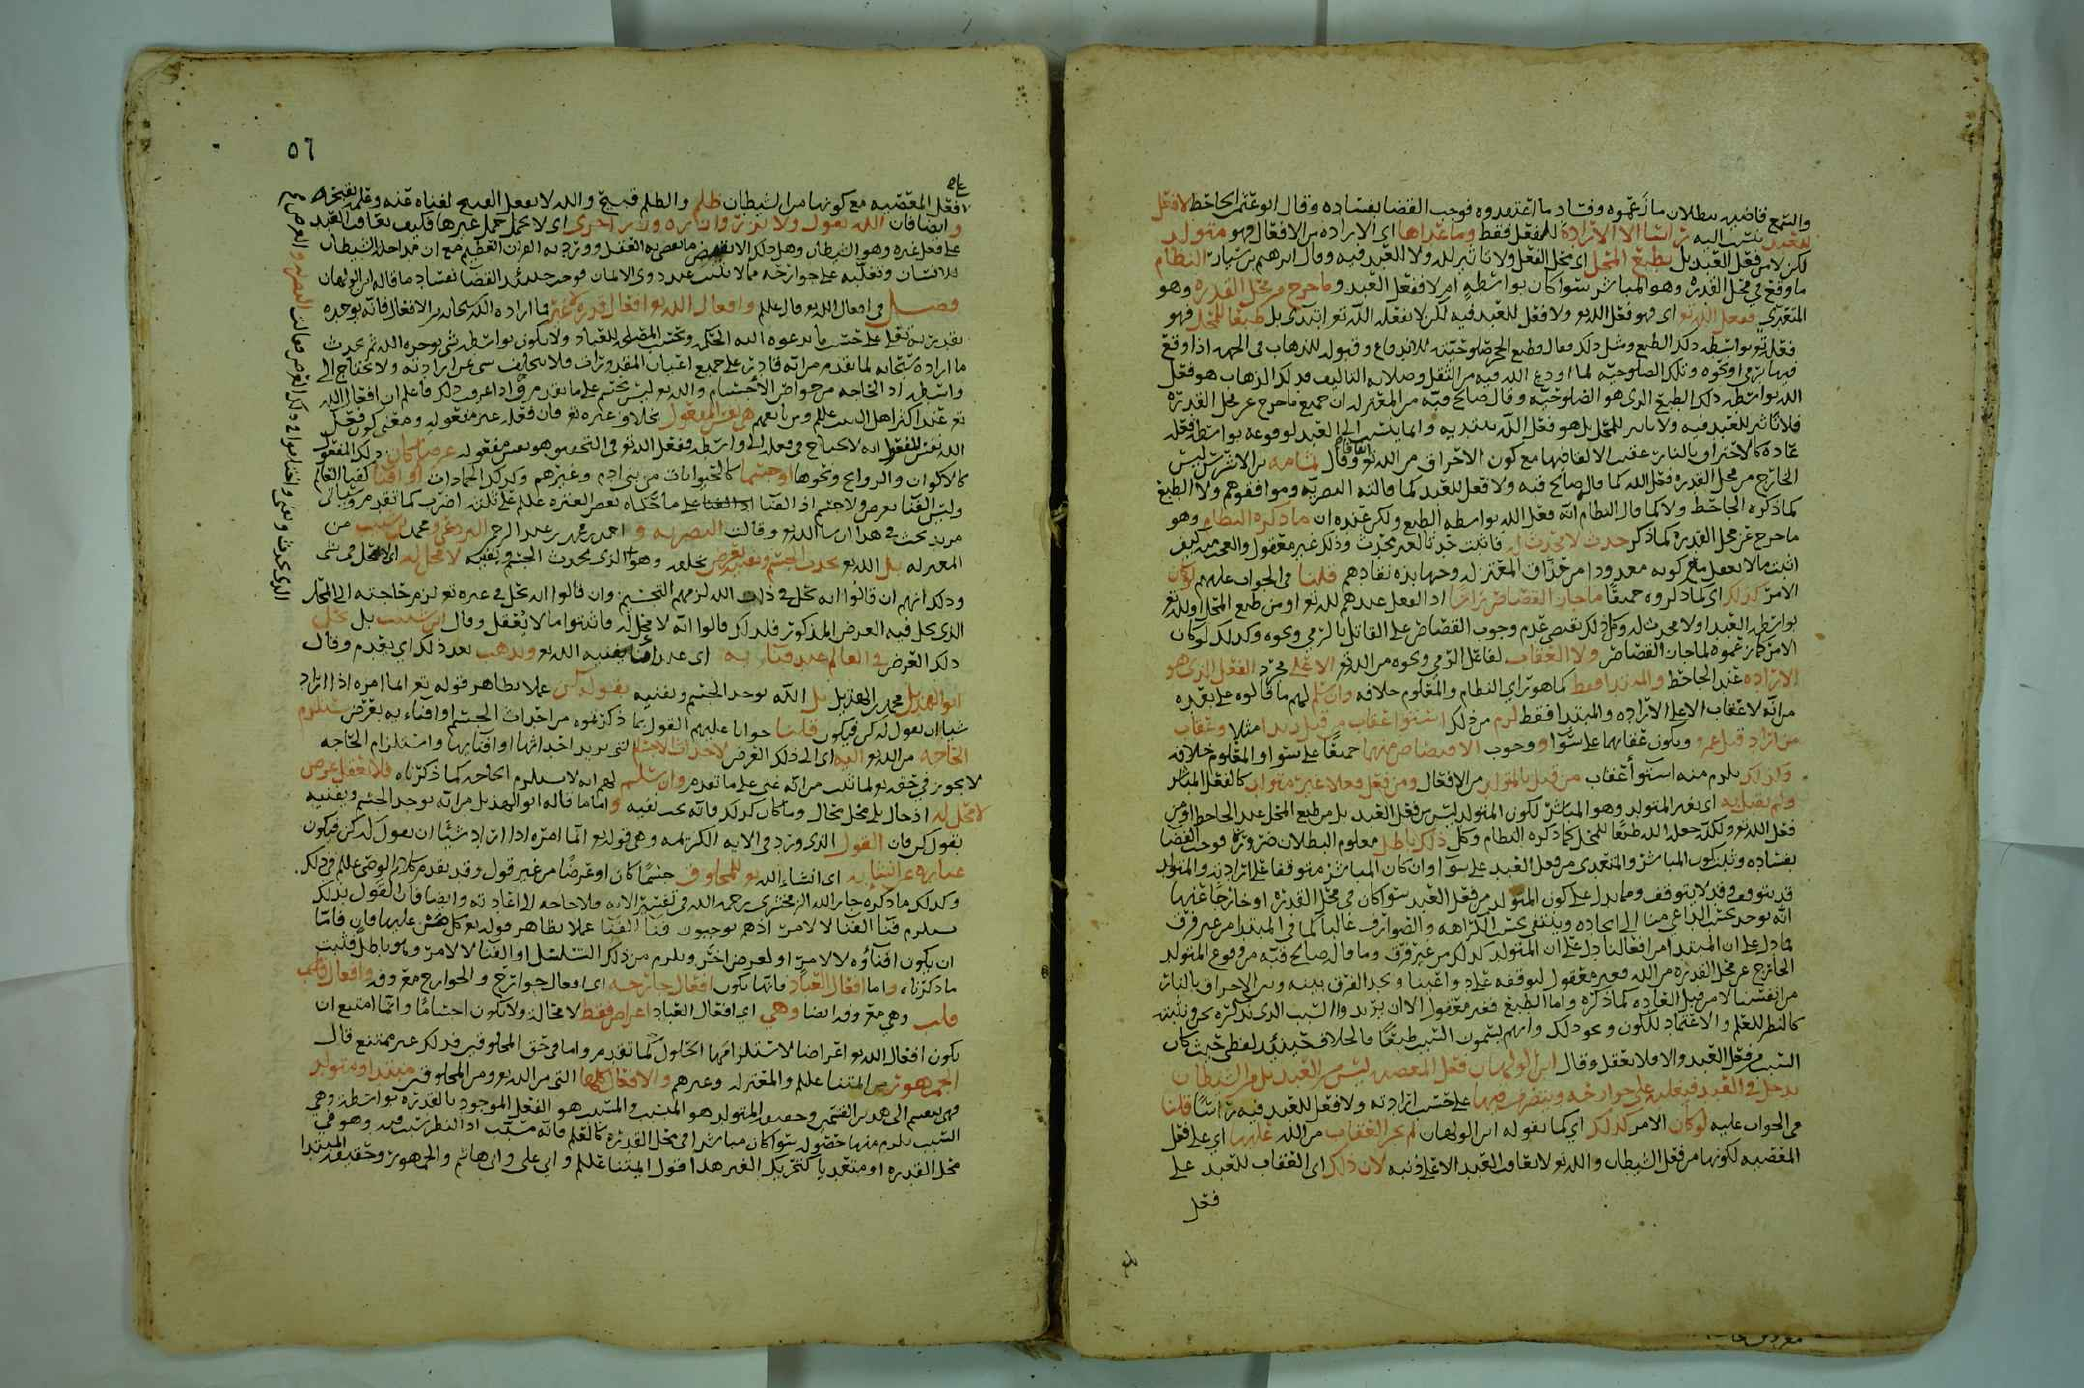 والسمع قاضيه ببطلان ما زعموه وفساد ما اعتقدوه فوجب القضا بفساده وقال ابو عثمن الجاحظ لا فعل
للعبد ينتسب اليه راسا الا الارادة للفعل فقط وما عداها اى الارادة من الافعال فهو متولد
لكن لا من فعل العبد بل بطبع المحل اى محل الفعل ولا تاثير لله ولا للعبد فيه وقال ابرهيم بن سيار النظام
ما وقع في محل القدرة وهو المباشر سوا كان بواسطة ام لا ففعل العبد وما خرج من محل القدرة وهو
المتعدى ففعل الله تع اى فهو فعل الله تع ولا فعل للعبد فيه لكن لا يفعله الله تع ابتدى بل طبعا للمحل فهو
فعله تع بواسطة ذلك الطبع ومثل ذلك فقال وطبع الحجر صلوحيته للاندفاع وقبوله للذهاب في الجهه اذا وقع
فيها رمى او نحوه وتلك الصلوحيه لما اودع الله فيه من الثقل وصلابه التاليف فذلك الذهاب هو فعل
الله بواسطه ذلك الطبع الذى هو الصلوحيه وقال صالح قبه من المعتزله ان جميع ما خرج عن محل القدرة
فلا تاثير للعبد فيه ولا تاثير للمحل بل هو فعل الله يبتديه وانما ينسب الى العبد لوقوعه بواسطه فعله
عادة كالاحتراق بالنار عقب الالقا فيها مع كون الاحراق من الله تع اتفاقا وقال ثمامه بن الاشرس ليس
الخارج من محل القدره فعل الله كما قال صالح قبه ولا فعل للعبد كما قالته البصريه وموافقوهم ولا الطبع
كما ذكره الجاحظ ولا كما قال النظام انه فعل الله بواسطه الطبع ولكن عنده ان ما ذكره النظام وهو
ما خرج عن محل القدرة كما ذكر حدث لا محدث له فاثبت حدثا لغير محدث وذلك غير معقول والعجب من كيف
اثبت ما لا يعقل مع كونه معدودا من حذاق المعتزله وجهابذه نقادهم قلنا في الجواب عليهم لو كان
الامر كذلك اى كما ذكروه جميعا ما جاز القصاص راسا اذ الفعل عندهم لله تع او من طبع المحل او لله تع
بواسطه العبد او لا محدث له وكل ذلك يقتضى عدم وجوب القصاص على القاتل بالرمي ونحوه وكذلك لو كان
الامر كما زعموه لما جاز القصاص ولا العقاب لفاعل الرمي ونحوه من الله تع الا على مجرد الفعل الذى هو
الاراده عند الجاحظ والمبتدا فقط كما هو راى النظام والمعلوم خلافه وان سلم لهم ما قالوه على بعده
من انه لا عقاب الا على الاراده والمبتدا فقط لزم من ذلك استوا عقاب من قتل زيدا مثلا وعقاب
من اراد قتل عمرو ويكون عقابهما على سوا او وجوب الاقتصاص منهما جميعا على سوا والمعلوم خلافه
وكذلك يلزم منه استوا عقاب من فعل بالمتولد من الافعال ومن فعل فعلا غير متولد كالفعل المباشر
ولم يفعل به اى بغير المتولد وهو المباشر لكون المتولد ليس من فعل العبد بل من طبع المحل عند الجاحظ او من
فعل الله تع ولكنه جعل الله طبعا للمحل كما ذكره النظام وكل ذلك باطل معلوم البطلان ضرورة فوجب القضا
بفساده وثبت كون المباشر والمتعدى من فعل العبد على سوا وان كان المباشر متوقفا على ارادته والمتولد
قد يتوقف وقد لا يتوقف ومما يدل على كون المتولد من فعل العبد سوا كان في محل القدره او خارجا عنها
انه يوجد بحسب الداعى منا الى ايجاده وينتفى بحسب الكراهه والصوارف غالبا كما في المبتدا من غير فرق
لما دل على ان المبتدا من افعالنا دل على ان المتولد كذلك من غير فرق وما قاله صالح قبه من وقوع المتولد
الخارج عن محل القدره من الله فغير معقول لتوقفه على دواعينا ونجد الفرق بينه وبين الاحراق بالنار
من انفسنا لا من قبل العاده كما ذكره واما الطبع فغير معقول الا ان يريدوا السبب الذى نذكره نحن ونثبته
كالنظر للعلم والاعتماد للكون ونحو ذلك وانهم يسمون السبب طبعا فالخلاف حينئذ لفظى حيث كان
السبب من فعل العبد والا فلا يعقل وقال ابن الولهان فعل المعصيه ليس من العبد بل من الشيطان
يدخل في العبد فيغلبه على جوارحه ويتصرف فيها على حسب ارادته ولا فعل للعبد فيه راسا قلنا
في الجواب عليه لو كان الامر كذلك اى كما يقوله ابن الولهان لم يجز العقاب من الله عليها اى على فعل
المعصيه لكونها من فعل الشيطان والله تع لا يعاقب العبد الا على ذنبه لان ذلك اى العقاب للعبد على
فعل
٥٦
فعل المعصيه مع كونها من الشيطان ظلم والظلم قبيح والله لا يفعل القبيح لغناه عنه وعلمه بقبحه
وايضا فان الله يقول ولا تزر وازرة وزر اخرى اى لا تحمل حمل غيرها فكيف يعاقب العبد
على فعل غيره وهو الشيطان وهل ذلك الا نقيض ما يقضى به العقل وورد به القران العظيم مع ان مداخلة الشيطان
للانسان وتغلبه على جوارحه مما لا يثبت عند ذوى الالباب فوجب حينئذ القضا بفساد ما قاله ابن الولهان
فصل في افعال الله تع قال علم وافعال الله تع افعال قدرة لا غير فما اراده الله سبحانه من الافعال فانه يوجده
بقدرته تعلى على حسب ما تدعوه اليه الحكمه وبحسب المصلحه للعباد ولا يكون بواسطه شى يوجده الله ثم يحدث
ما اراده سبحانه لما تقدم من انه قادر على جميع اعيان المقدورات فلا يتخلف شى عن ارادته ولا يحتاج الى
واسطه اذ الحاجه من خواص الاجسام والله تع ليس بجسم على ما تقدم واذا عرفت ذلك فاعلم ان افعال الله
تع عند اكثر اهل البيت علم ومن تابعهم هي نفس المفعول بخلاف غيره تع فان فعله غير مفعوله ومعنى كون فعل
الله نفس المفعول انه لا يحتاج في فعله الى واسطه ففعل الله تع في التحقيق هو نفس مفعوله عرضا كان ذلك المفعول
كالاكوان والروايح ونحوها او جسما كالحيوانات من بنى ادم وغيرهم وكذلك الجمادات او افنا كفنا العالم
وليس الفنا بعرض ولا جسم اذ الفنا على ما حكاه بعض العتره علم على ثلثه اضرب كما تقدم وسياتى
مزيد بحث في هذا ان شا الله تع وقالت البصريه و احمد بن محمد بن عبد الرحمن البردعي و محمد بن شبيب من
المعتزله بل الله تع يحدث الجسم ويفنيه بعرض يخلقه وهو الذى يحدث الجسم ويفنيه لا محل له اى لا يحل في شى
وذلك انهم ان قالوا انه يحل في ذات الله لزمهم التجسيم وان قالوا انه يحل في غيره تع لزم حاجته الى المحل
الذى يحل فيه العرض المذكور فلذلك قالوا انه لا محل له فاثبتوا ما لا يعقل وقال ابن شبيب بل يحل
ذلك العرض في العالم عند فنائه به اى عند افنا يفنيه الله تع ويذهب بعد ذلك اى يعدم وقال
ابو الهذيل محمد بن الهذيل بل الله يوجد الجسم ويفنيه بقوله كن عملا بظاهر قوله تع انما امره اذا اراد
شيا ان يقول له كن فيكون قلنا جوابا عليهم القول بما ذكرتموه من احداث الجسم او افنائه بعرض يستلزم
الحاجه من الله تع اليه اى الى ذلك العرض لاحداث الاجسام التى يريد احداثها او افنايها واستلزام الحاجه
لا يجوز في حقه تع لما ثبت من انه غنى على ما تقدم وان سلم لهم انه لا يستلزم الحاجه كما ذكرناه فلا يعقل عرض
لا محل له اذ حال بلا محل محال وما كان كذلك فانه يجب نفيه واما ما قاله ابو الهذيل من انه يوجد الجسم ويفنيه
بقول كن فان القول الذى ورد في الايه الكريمه وهى قوله تع انما امره اذا اراد شيئا ان يقول له كن فيكون
عباره عن انشايه اى انشاء الله تع للمخلوق جسما كان او عرضا من غير قول وقد تقدم كلام الوصى علم في ذلك
وكذلك ما ذكره جار الله الزمخشرى رحمه الله في تفسير الايه فلا حاجه الى اعادته وايضا فان القول بذلك
يستلزم فنا الفنا لا لامر اذ هم يوجبون فنا الفنا عملا بظاهر قوله تع كل من عليها فان فاما
ان يكون افناؤه لا لامر او لعرض اخر ويلزم من ذلك التسلسل او الفنا لا لامر وهو باطل فثبت
ما ذكرناه واما افعال العباد فانها تكون افعال جارحه اى افعال جوارح والجوارح معروفه وافعال قلب
قلب وهي معروفه ايضا وهي اى افعال العباد اعراض فقط لا محاله ولا تكون اجساما وانما امتنع ان
يكون افعال الله تع اعراضا لاستلزامها الحلول كما تقدم واما في حق المخلوقين فذلك غير ممتنع قال
الجمهور من ايمتنا علم والمعتزله وغيرهم والافعال كلها التى من الله تع ومن المخلوقين مبتدا ومتولد
فهى تنقسم الى هذين القسمين وحقيقه المتولد هو المسبب والمسبب هو الفعل الموجود بالقدره بواسطه وهى
السبب يلزم منها حصوله سوا كان مباشرا في محل القدره كالعلم فانه مسبب اذ النظر سبب فيه وهو في
محل القدره او متعديا كتحريك الغير هذا قول ايمتنا علم وابى على وابى هاشم والجمهور وحقيقه المبتدا